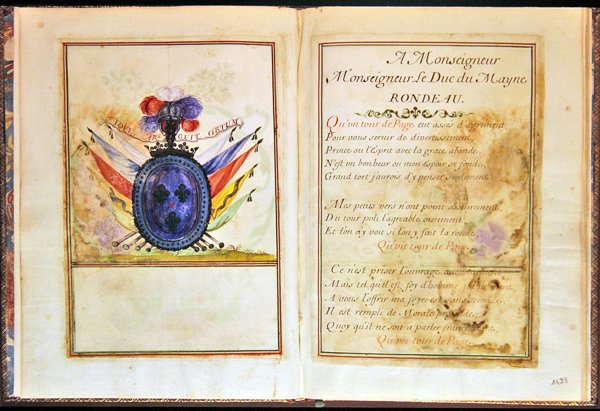 JOVE DIGNUM QUIT ORTUM
A Monseigneur
Monseigneur Le Duc du Mayne
RONDEAU.
Qu'vn tour de Page eut assés d'agrément
Pour vous seruir de divertissement,
Prince ou l'Esprit avec la grace abonde,
N'est vn bonheur ou mon Espoir se fonde,
Grand tort j'aurois d'y penser seulement.
Mes petits vers n'ont point asseurément
Du tour poli l'agreable ornement,
Et l'on n'y voit si l'on y fait la ronde
Qu'vn tour de Page.
Ce n'est priser l'ouurage
Mais tel qu'il est, foy d'homme
A vous l'offrir ma joye est sans seconde,
Il est rempli de Morale profonde,
Quoy qu'il ne soit a parler franchement,
Qu'vn tour de Page.
1499